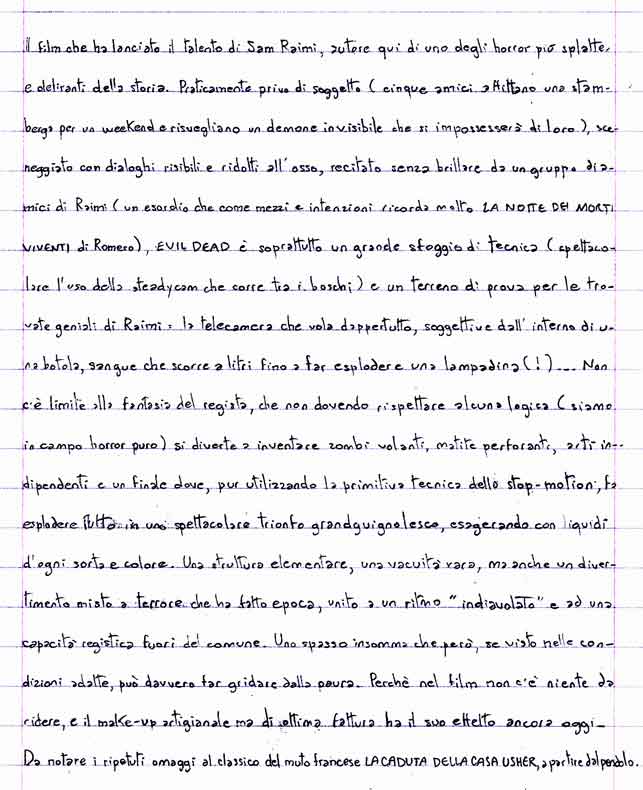 Il film che ha lanciato il talento di Sam Raimi, autore qui di uno degli horror più splatter
e deliranti della storia. Praticamente privo di soggetto (cinque amici affittano una stam-
berga per un weekend e risvegliano un demone invisibile che si impossesserà di loro), sce-
neggiato con dialoghi risibili e ridotti all'osso, recitato senza brillare da un gruppo di a-
mici di Raimi (un esordio che come mezzi e intenzioni ricorda molto LA NOTTE DEI MORTI
VIVENTI di Romero), EVIL DEAD è soprattutto un grande sfoggio di tecnica (spettaco-
lare l'uso della steadycam che corre tra i boschi) e un terreno di prova per le tro-
vate geniali di Raimi: la telecamera che vola dappertutto, soggettive dall'interno di u-
na botola, sangue che scorre a litri fino a far esplodere una lampadina (!)... Non
c'è limite alla fantasia del regista, che non dovendo rispettare alcuna logica (siamo
in campo horror puro) si diverte a inventare zombi volanti, matite perforanti, arti in-
dipendenti e un finale dove, pur utilizzando la primitiva tecnica dello stop-motion, fa
esplodere tutto in uno spettacolare trionfo grandguignolesco, esagerando con liquidi
d'ogni sorta e colore. Una struttura elementare, una vacuità rara, ma anche un diver-
timento misto a terrore che ha fatto epoca, unito a un ritmo "indiavolato" e ad una
capacità registica fuori del comune. Uno spasso insomma che però, se visto nelle con-
dizioni adatte, può davvero far gridare dalla paura. Perchè nel film non c'è niente da
ridere, e il make-up artigianale ma di ottima fattura ha il suo effetto ancora oggi.
Da notare i ripetuti omaggi al classico del muto francese LA CADUTA DELLA CASA USHER, a partire dal pendolo.